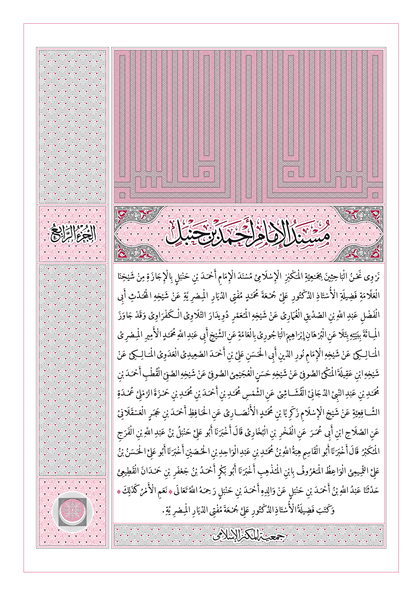 مُسْنَدُ الإِمَامِ أَحْمَدَ بْنِ حَنْبَلٍ
الجُزْءُ الرَّابِعُ
نَرْوِى نَحْنُ البَاحِثِينَ بِجَمْعِيَّةِ المَكْنِزِ الإِسْلَامِىِّ مُسْنَدَ الإِمَامِ أَحْمَدَ بْنِ حَنْبَلٍ بِالإِجَازَةِ مِنْ شَيْخِنَا
العَلَّامَةِ فَضِيلَةِ الأُسْتَاذِ الدُّكْتُورِ عَلِىّ جُمْعَة مُحَمَّدٍ مُفْتِى الدِّيَارِ المِصْرِيَّةِ عَنْ شَيْخِهِ المُحَدِّثِ أَبِى
الفَضْلِ عَبْدِ اللهِ بْنِ الصِّدِّيقِ الغُمَارِىِّ عَنْ شَيْخِهِ المُعَمَّرِ دُوِيدَارَ التَّلَاوِىِّ الكَفْرَاوِىِّ وَقَدْ جَاوَزَ
المِائَةَ بِيَقِينٍ عَنِ البُرْهَانِ إِبْرَاهِيمَ البَاجُورِىِّ بِالعَامَّةِ عَنِ الشَّيْخِ أَبِى عَبْدِ اللهِ مُحَمَّدٍ الأَمِيرِ المِصْرِىِّ
المَالِكِىِّ عَنْ شَيْخِهِ الإِمَامِ نُورِ الدِّينِ أَبِى الحَسَنِ عَلِىِّ بْنِ أَحْمَدَ الصَّعِيدِىِّ العَدَوِىِّ المَالِكِىِّ عَنْ
شَيْخِهِ ابْنِ عَقِيلَةَ المَكِّىِّ الصُّوفِىِّ عَنْ شَيْخِهِ حَسَنٍ العُجَيْمِىِّ الصُّوفِىِّ عَنْ شَيْخِهِ الصَّفِىِّ القُطْبِ أَحْمَدَ بْنِ
مُحَمَّدِ بْنِ عَبْدِ النَّبِىِّ الدَّجَانِىِّ القُشَاشِىِّ عَنِ الشَّمْسِ مُحَمَّدِ بْنِ أَحْمَدَ بْنِ مُحَمَّدِ بْنِ حَمْزَةَ الرَّمْلِىِّ عُمْدَةِ
الشَّافِعِيَّةِ عَنْ شَيْخِ الإِسْلَامِ زَكَرِيَّا بْنِ مُحَمَّدٍ الأَنْصَارِىِّ عَنِ الحَافِظِ أَحْمَدَ بْنِ حَجَرٍ العَسْقَلَانِىِّ
عَنِ الصَّلَاحِ ابْنِ أَبِى عُمَرَ عَنِ الفَخْرِ بْنِ البُخَارِىِّ قَالَ أَخْبَرَنَا أَبُو عَلِىٍّ حَنْبَلُ بْنُ عَبْدِ اللهِ بْنِ الفَرَجِ
المُكَبِّرُ قَالَ أَخْبَرَنَا أَبُو القَاسِمِ هِبَةُ اللهِ بْنُ مُحَمَّدِ بْنِ عَبْدِ الوَاحِدِ بْنِ الحُصَيْنِ أَخْبَرَنَا أَبُو عَلِىٍّ الحَسَنُ بْنُ
عَلِىٍّ التَّمِيمِىُّ الوَاعِظُ المَعْرُوفُ بِابْنِ المُذْهِبِ أَخْبَرَنَا أَبُو بَكْرٍ أَحْمَدُ بْنُ جَعْفَرِ بْنِ حَمْدَانَ القَطِيعِىُّ
حَدَّثَنَا عَبْدُ اللهِ بْنُ أَحْمَدَ بْنِ حَنْبَلٍ عَنْ وَالِدِهِ أَحْمَدَ بْنِ حَنْبَلٍ رَحِمَهُ اللهُ تَعَالَى * نَعَمِ الأَمْرُ كَذَلِكَ *
وَكَتَبَ فَضِيلَةُ الأُسْتَاذِ الدُّكْتُورِ عَلِىّ جُمْعَة مُفْتِى الدِّيَارِ المِصْرِيَّةِ.
جمعية المكنز الإسلامى